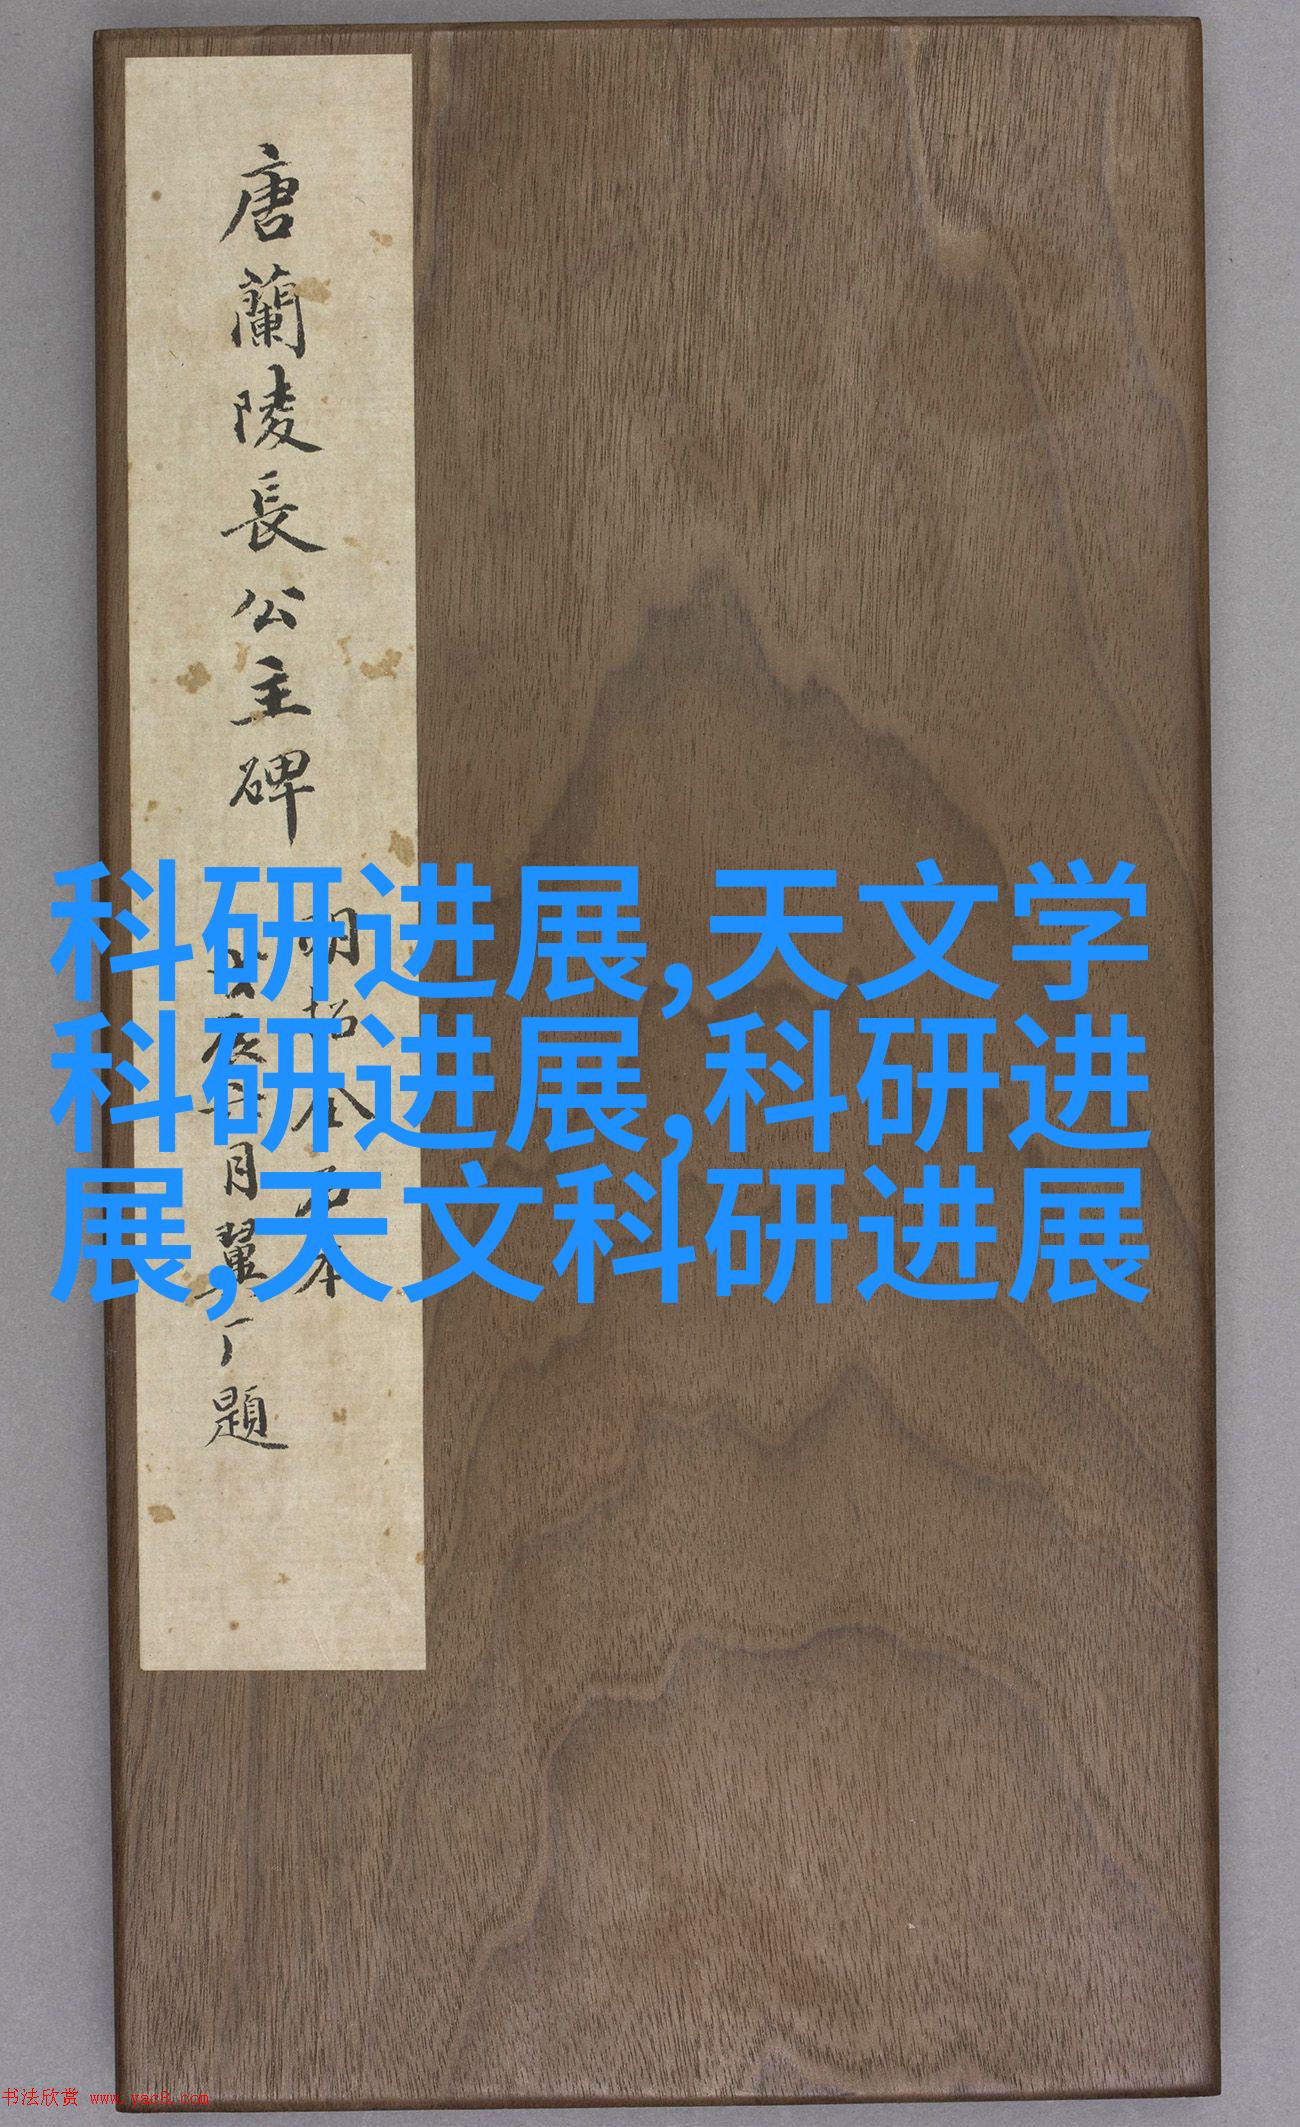 唐蘭陵長公主碑
明拓全石本
月翼丁題
科研进展,天文学
科研进展,科研进
展,天文科研进展
书法欣赏 www.yac8.com